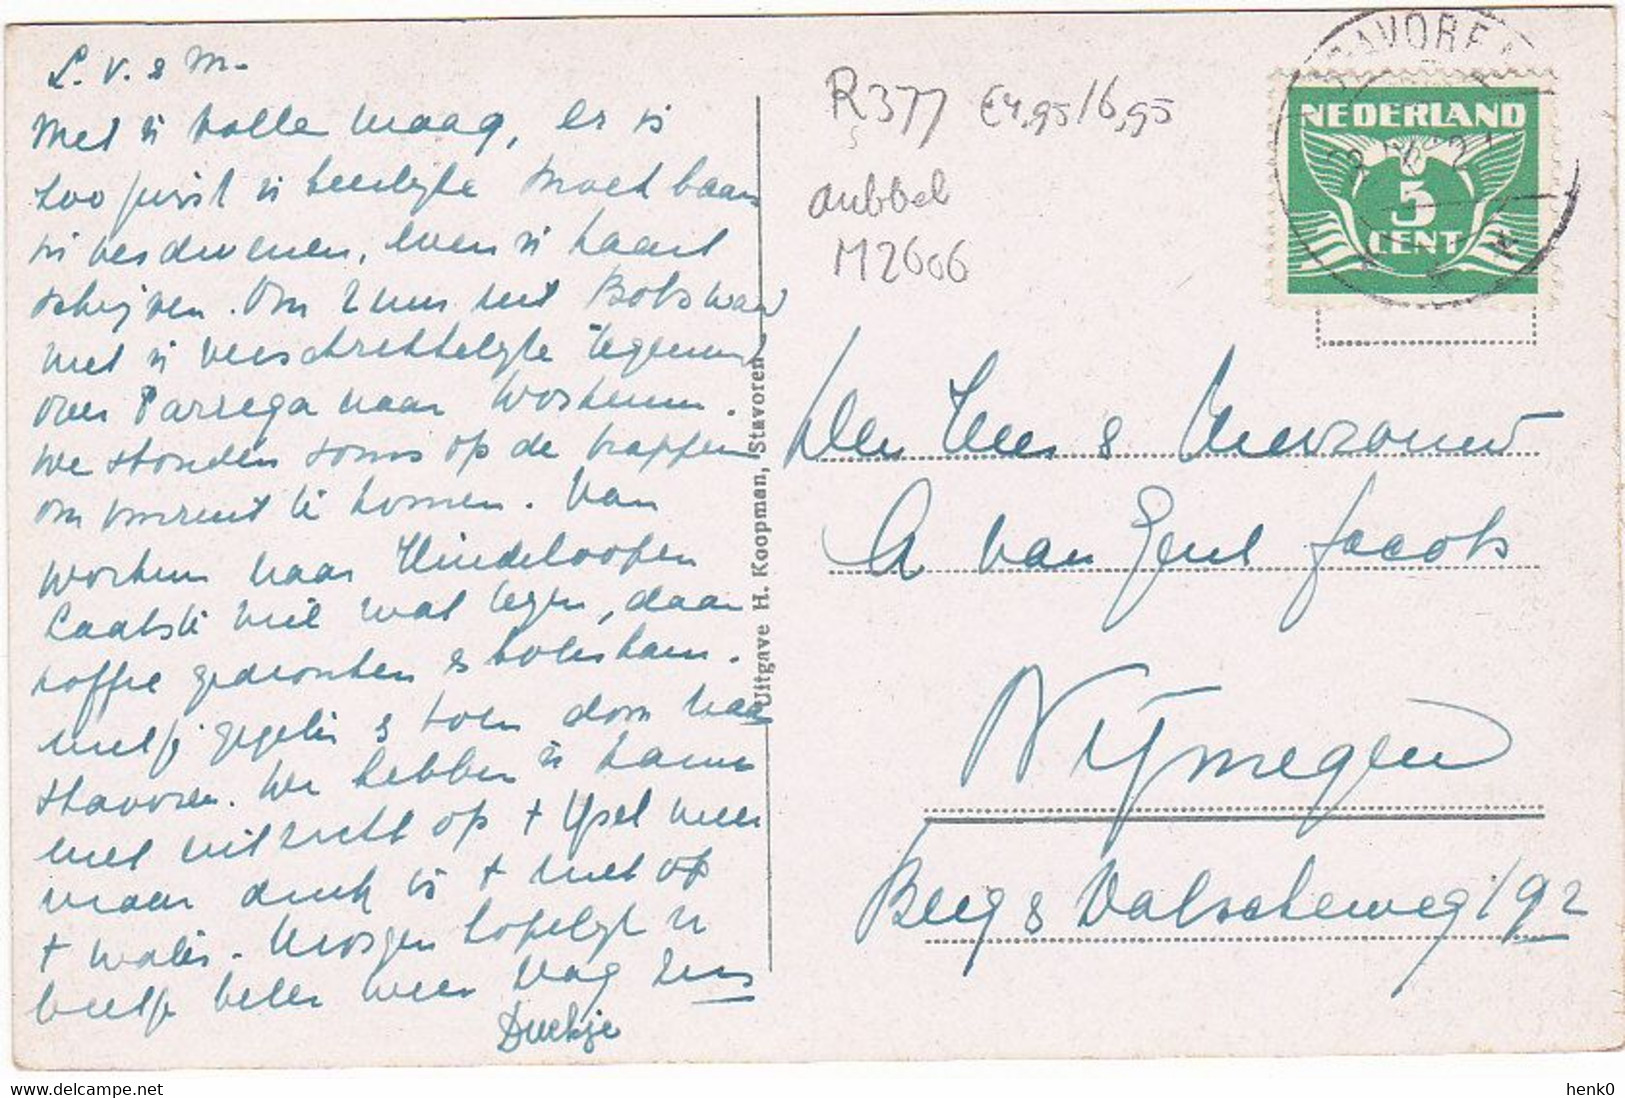 L. V. & M.
Met 'n volle maag, er is
zoo juist 'n heerlijke
in verdwenen, even 'n kaart
schrijven. Om 2 uur uit Bolsward
met 'n verschrikkelijke tegenwind
over Parrega naar Workum.
We stonden soms op de trappen
om vooruit te komen. Van
Workum naar Hindeloopen
Laatste viel wat tegen, daar
koffie gedronken & boterham.
wat gegeten & toen door naar
Stavoren. We hebben 'n kamer
met uitzicht op 't IJsselmeer
maar druk is 't niet op
't water. Morgen hopelijk 'n
beetje beter weer Dag Zus
Duckje
Uitgave H. Koopman, Stavoren
R377 €4,95/6,95
dubbel
M2606
STAVOREN
NEDERLAND
5
CENT
Den Heer & Mevrouw
A van Gent Jacobs
Nijmegen
Berg & Dalscheweg 192
henk0
delcampe.net